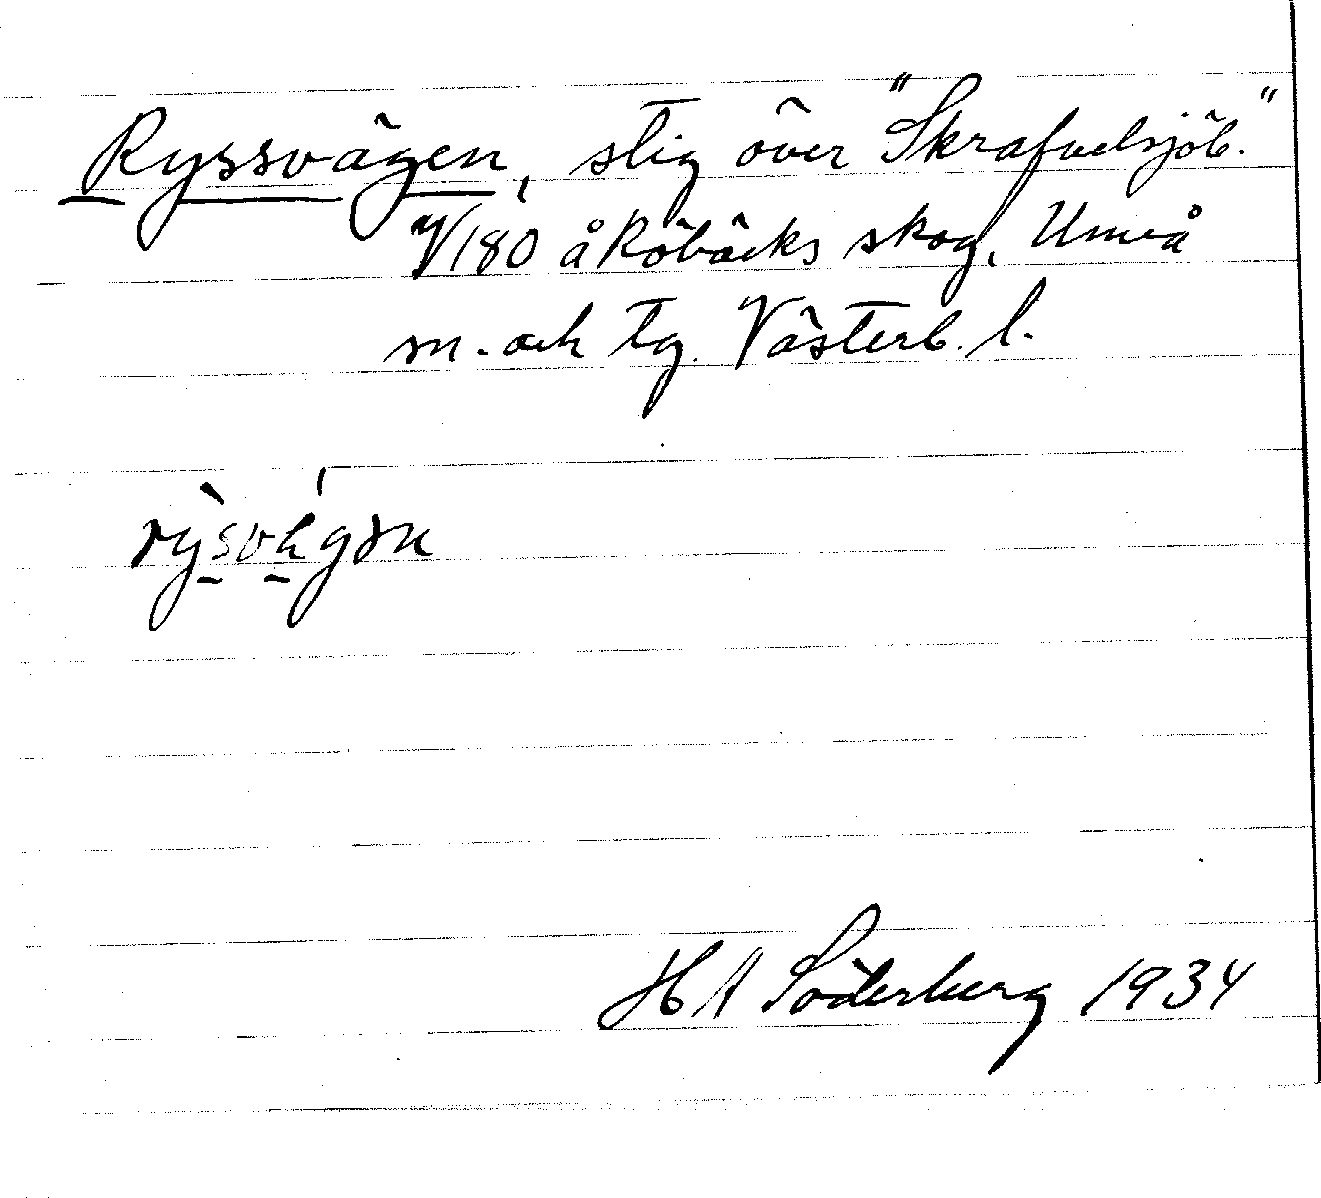 Ryssvägen, stig över "Skrafvelsjöb."
V180 å Röbäcks skog, Umeå
m. och tg. Västerb. l.
H A Söderberg 1934